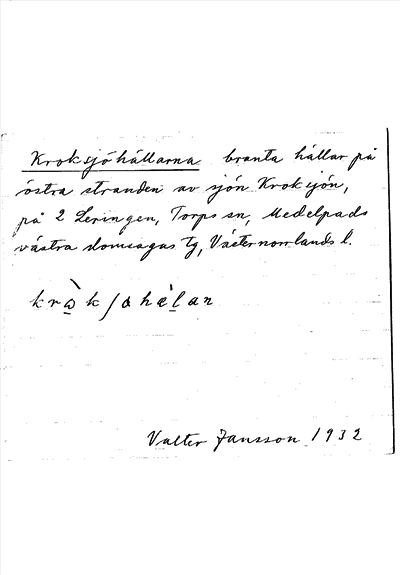 Kroksjöhällarna branta hällar på
östra stranden av sjön Kroksjön,
på 2 Leringen, Torps sn, Medelpads
västra domsagas tg, Västernorrlands l.
Valter Jansson 1932